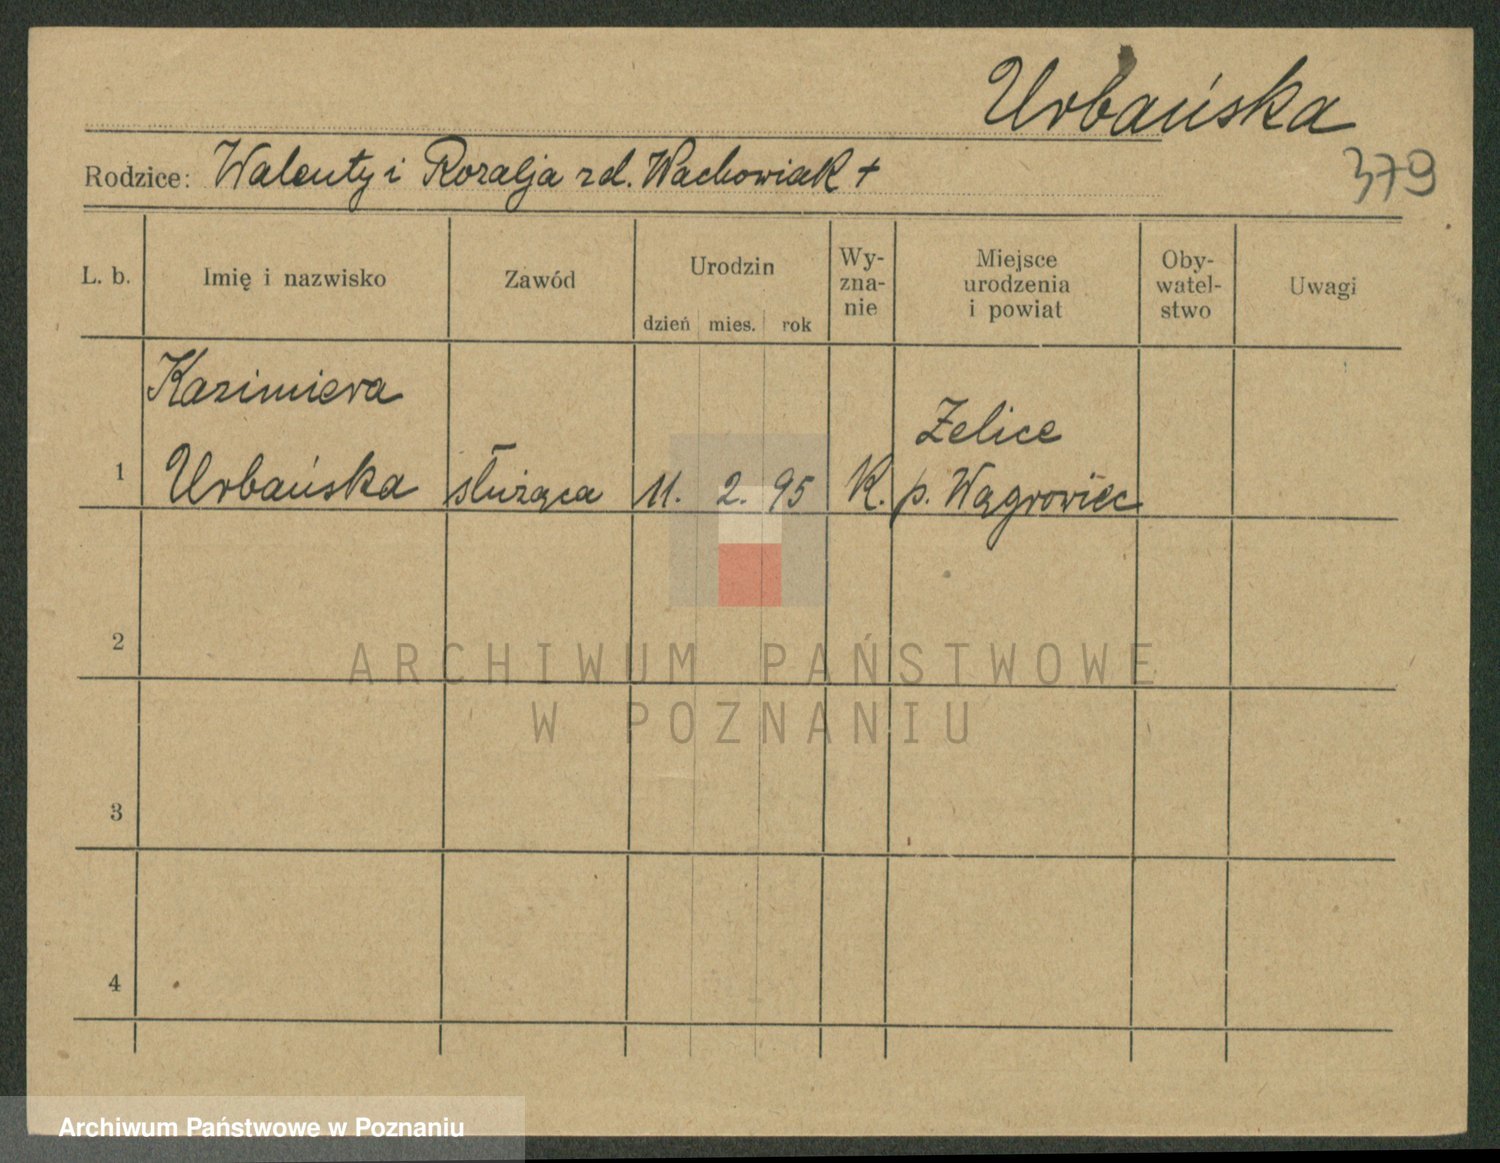 Urbańska
Rodzice: Walenty i Rozalja zd. Wachowiak +
379
L. b.
Imię i nazwisko
Zawód
Urodzin
dzień mies. rok
Wy-
zna-
nie
Miejsce
urodzenia
i powiat
Oby-
watel-
stwo
Uwagi
Kazimiera
Żelice
1 Urbańska służąca 11. 2. 95 K. p. Wągrowiec
2
ARCHIWUM PAŃSTWOWE
W POZNANIU
3
4
Archiwum Państwowe w Poznaniu